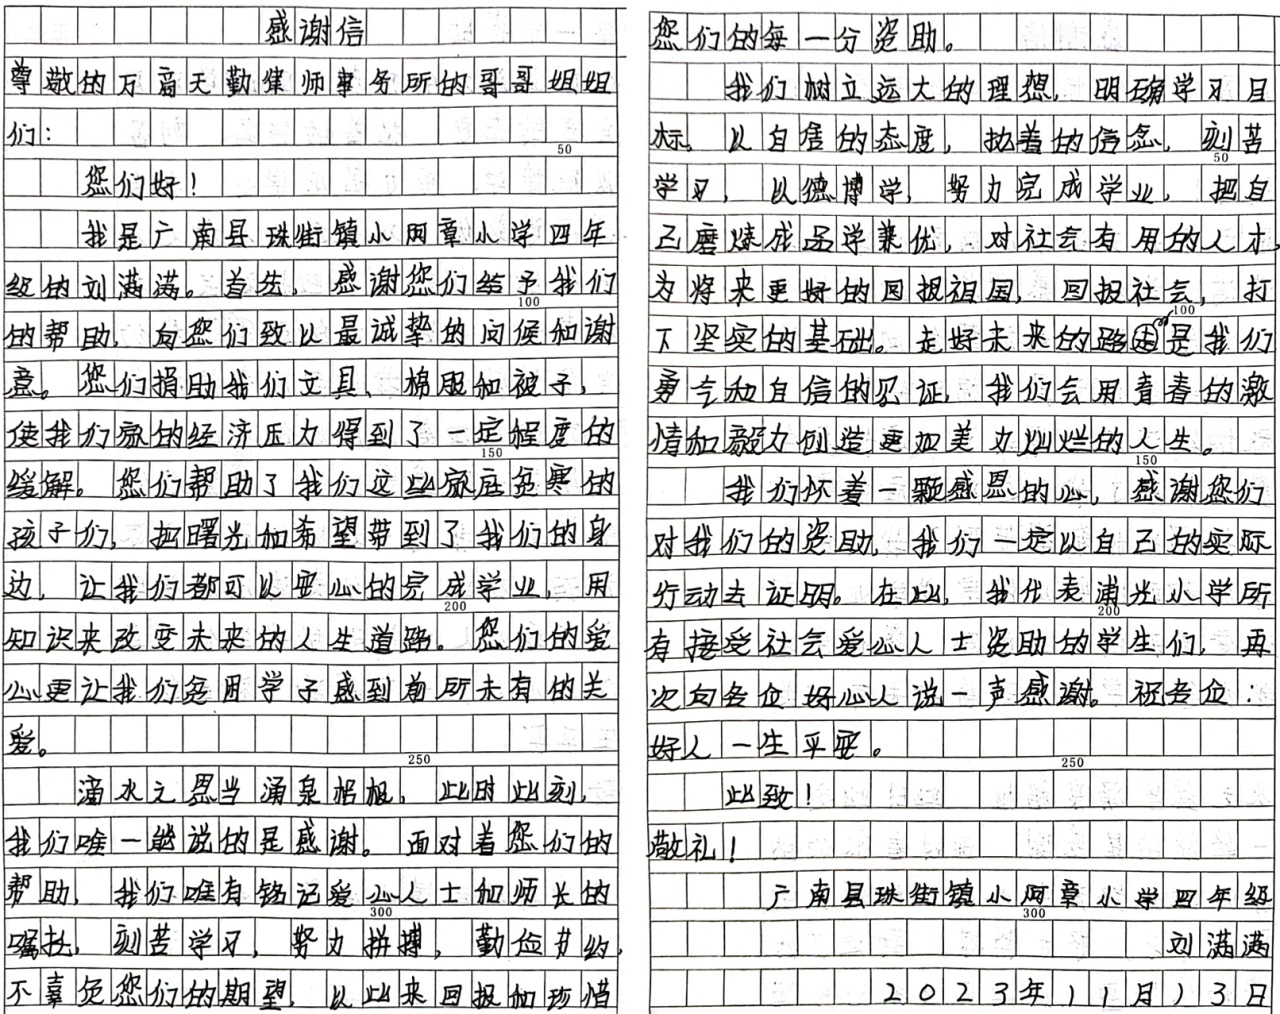 感谢信
尊敬的万商天勤律师事务所的哥哥姐姐
们：
50
您们好！
我是广南县珠街镇小阿章小学四年
级的刘满满。首先，感谢您们给予我们
100
的帮助，向您们致以最诚挚的问候和谢
意。您们捐助我们文具、棉服和被子，
使我们家的经济压力得到了一定程度的
150
缓解。您们帮助了我们这些家庭贫寒的
孩子们，把曙光和希望带到了我们的身
边，让我们都可以安心的完成学业，用
200
知识来改变未来的人生道路。您们的爱
心更让我们贫困学子感到前所未有的关
爱。
250
滴水之恩当涌泉相报，此时此刻，
我们唯一能说的是感谢。面对着您们的
帮助，我们唯有铭记爱心人士和师长的
300
嘱托，刻苦学习，努力拼搏，勤俭节约，
不辜负您们的期望，以此来回报和珍惜
您们的每一分资助。
我们树立远大的理想，明确学习目
标，以自信的态度，执着的信念，刻苦
50
学习，以德博学，努力完成学业，把自
己磨炼成品学兼优，对社会有用的人才，
为将来更好的回报祖国，回报社会，打
100
下坚实的基础。走好未来的路是我们
勇气和自信的见证，我们会用青春的激
情和毅力创造更加美力灿烂的人生。
150
我们怀着一颗感恩的心，感谢您们
对我们的资助，我们一定以自己的实际
行动去证明。在此，我代表浦光小学所
200
有接受社会爱心人士资助的学生们，再
次向各位好心人说一声感谢。祝各位：
好人一生平安。
250
此致！
敬礼！
广南县珠街镇小阿章小学四年级
300
刘满满
2023年11月13日